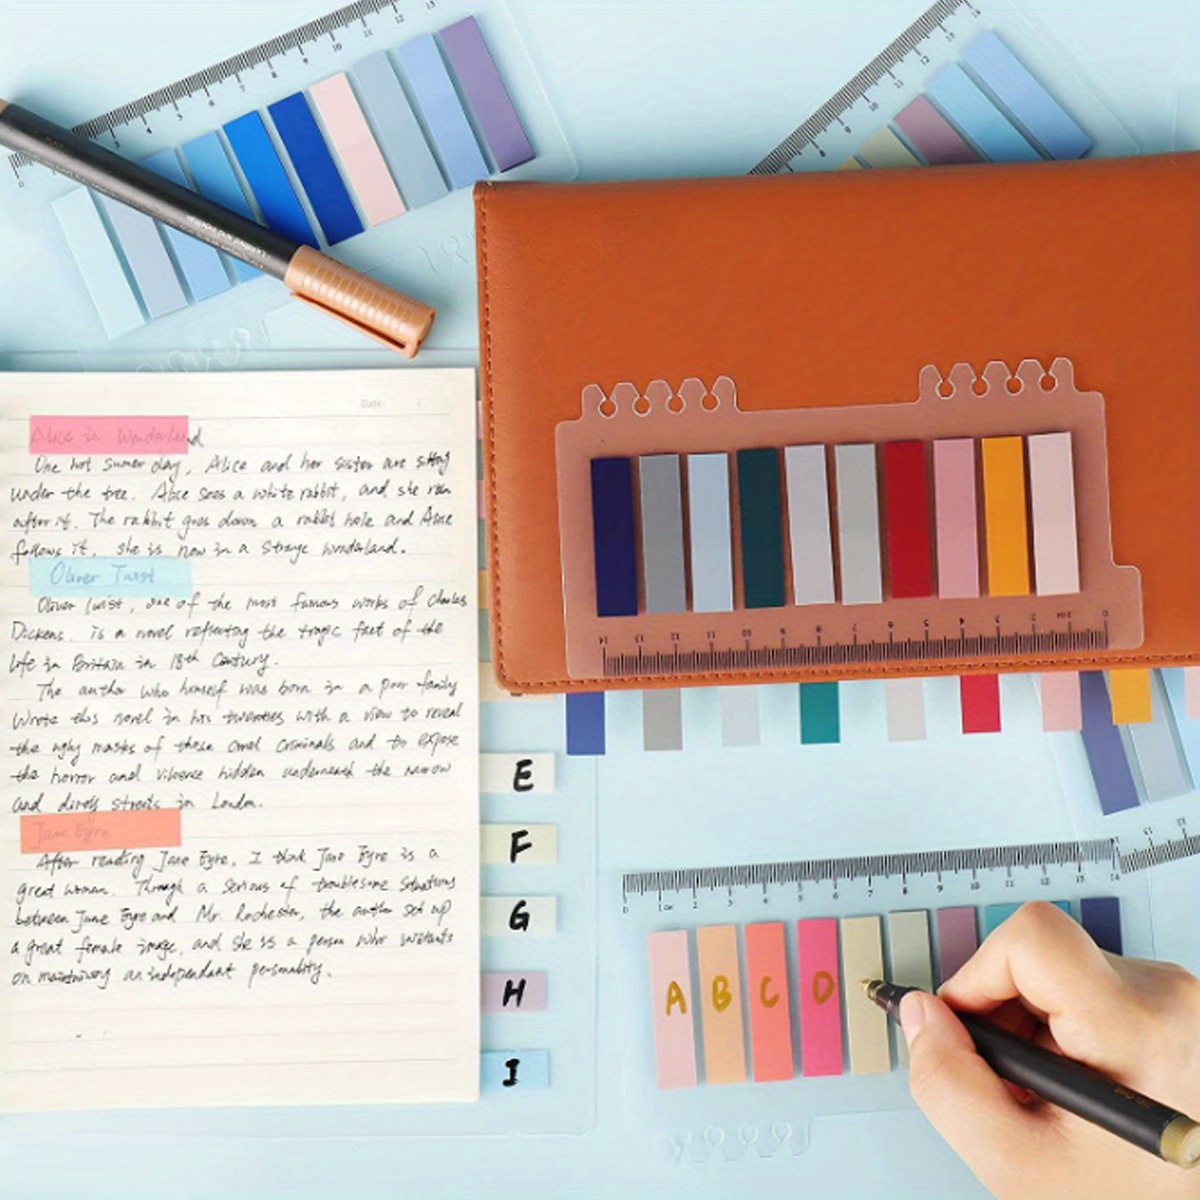 Date
Alice in Wonderland
One hot sumer day, Alice and her sister are sitting
under the tree. Alice sees a white rabbit, and she ran
after it. The rabbit goes down a rabbit hole and Alice
follows it, she is now in a strange wonderland.
Oliver Twist
Oliver Twist, one of the most famous works of Charles
Dickens. is a novel reflecting the tragic fact of the
life in Britain in 18th Century.
The author who himself was born in a poor family
wrote this novel in his twenties with a view to reveal
the ugly masks of those cruel criminals and to expose
the horror and violence hidden underneath the narrow
and dirty streets in London.
Jane Eyre
After reading Jane Eyre, I think Jane Eyre is a
great woman. Through a serious of troublesome situations
between Jane Eyre and Mr. Rochester, the author set up
a great female image, and she is a person who insists
on maintaining an independant personality.
E
F
G
H
I
A B C D